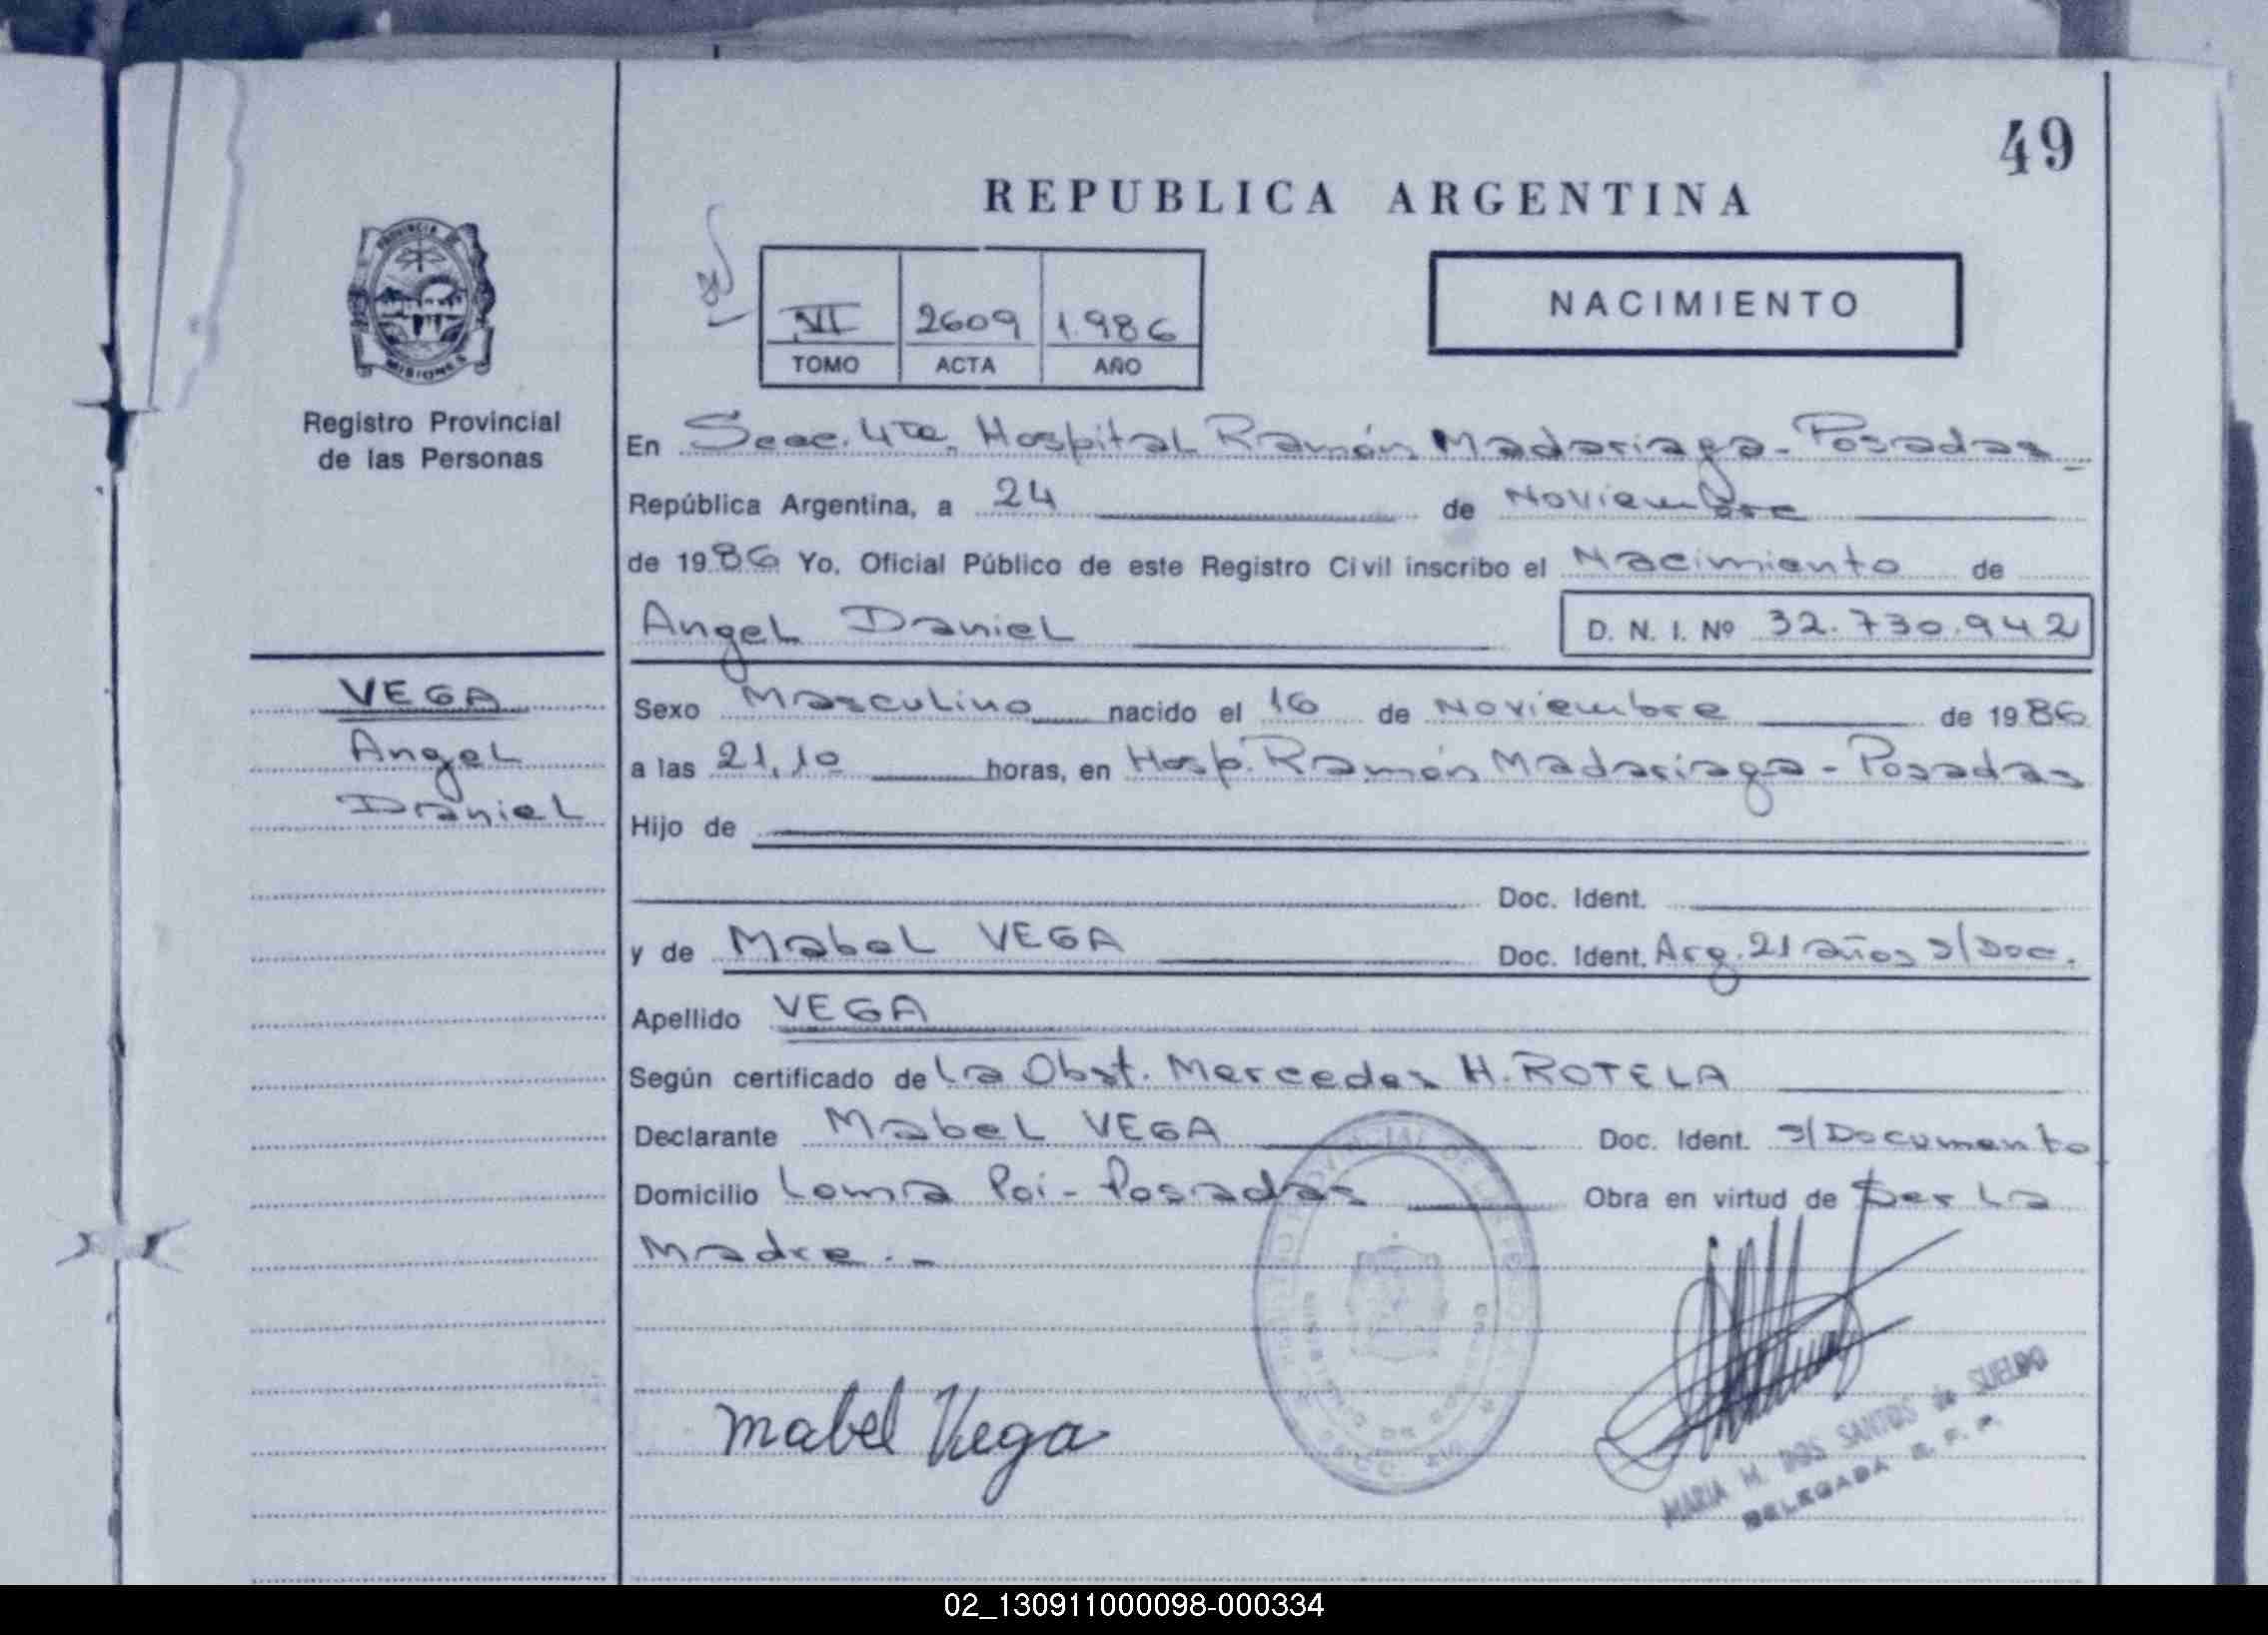 49
REPUBLICA ARGENTINA
NACIMIENTO
2609 1.986
TOMO ACTA AÑO
PROVINCIA DE
MISIONES
Registro Provincial
de las Personas
En Secc. 4ta. Hospital Ramón Madariaga - Posadas
República Argentina, a 24 de Noviembre
de 1986 Yo, Oficial Público de este Registro Civil inscribo el Nacimiento de
Angel Daniel D. N. I. Nº 32.730.942
VEGA
Angel
Daniel
Sexo Masculino nacido el 16 de Noviembre de 1986
a las 21,10 horas, en Hosp. Ramón Madariaga - Posadas
Hijo de
Doc. Ident.
y de Mabel VEGA Doc. Ident. Arg. 21 años s/Doc.
Apellido VEGA
Según certificado de la Obst. Mercedes H. ROTELA
Declarante Mabel VEGA Doc. Ident. s/Documento
Domicilio Loma Poi - Posadas Obra en virtud de Ser la
Madre.-
Mabel Vega
MARIA M. DOS SANTOS de SUELDO
DELEGADA R. P. P.
02_130911000098-000334